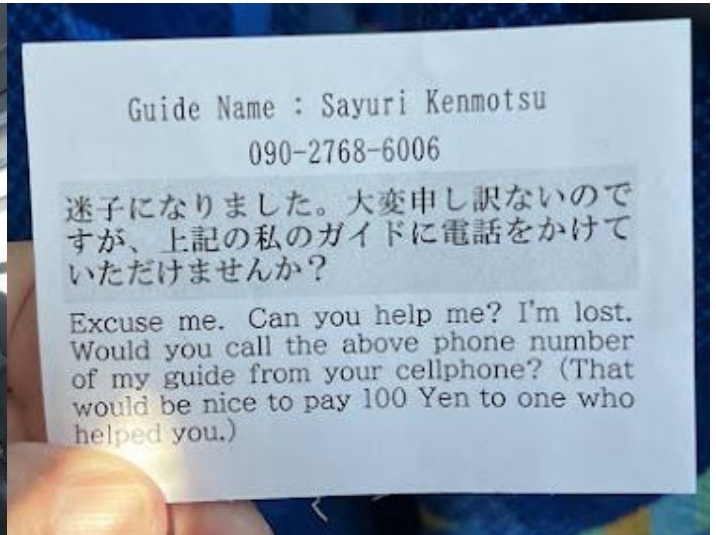 Guide Name : Sayuri Kenmotsu
090-2768-6006
迷子になりました。大変申し訳ないので
すが、上記の私のガイドに電話をかけて
いただけませんか？
Excuse me. Can you help me? I'm lost.
Would you call the above phone number
of my guide from your cellphone? (That
would be nice to pay 100 Yen to one who
helped you.)